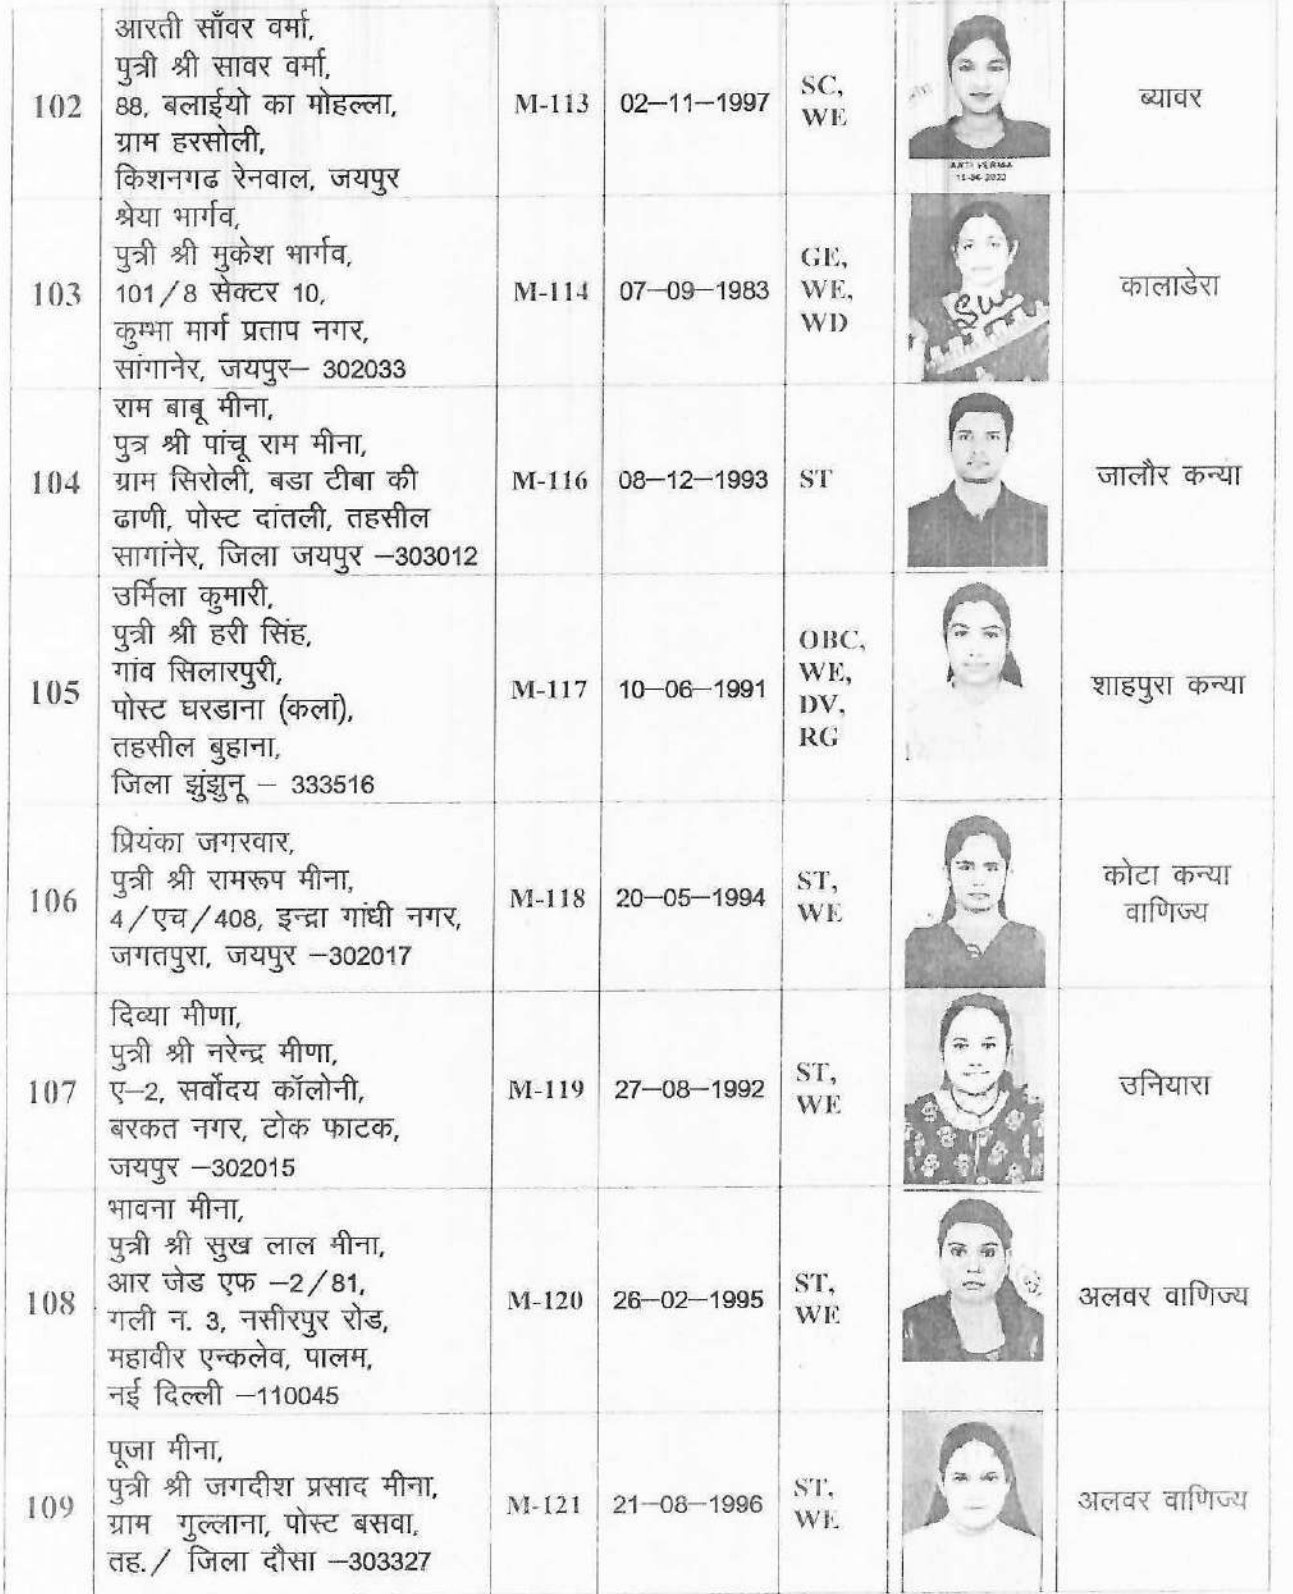 102
आरती साँवर वर्मा,
पुत्री श्री सावर वर्मा,
88, बलाईयो का मोहल्ला,
ग्राम हरसोली,
किशनगढ रेनवाल, जयपुर
M-113
02–11–1997
SC,
WE
ARTI VERMA
ब्यावर
103
श्रेया भार्गव,
पुत्री श्री मुकेश भार्गव,
101/8 सेक्टर 10,
कुम्भा मार्ग प्रताप नगर,
सांगानेर, जयपुर– 302033
M-114
07–09–1983
GE,
WE,
WD
कालाडेरा
104
राम बाबू मीना,
पुत्र श्री पांचू राम मीना,
ग्राम सिरोली, बडा टीबा की
ढाणी, पोस्ट दांतली, तहसील
सागांनेर, जिला जयपुर –303012
M-116
08–12–1993
ST
जालौर कन्या
105
उर्मिला कुमारी,
पुत्री श्री हरी सिंह,
गांव सिलारपुरी,
पोस्ट घरडाना (कलां),
तहसील बुहाना,
जिला झुंझुनू – 333516
M-117
10–06–1991
OBC,
WE,
DV,
RG
शाहपुरा कन्या
106
प्रियंका जगरवार,
पुत्री श्री रामरूप मीना,
4/एच/408, इन्द्रा गांधी नगर,
जगतपुरा, जयपुर –302017
M-118
20–05–1994
ST,
WE
कोटा कन्या
वाणिज्य
107
दिव्या मीणा,
पुत्री श्री नरेन्द्र मीणा,
ए–2, सर्वोदय कॉलोनी,
बरकत नगर, टोक फाटक,
जयपुर –302015
M-119
27–08–1992
ST,
WE
उनियारा
108
भावना मीना,
पुत्री श्री सुख लाल मीना,
आर जेड एफ –2/81,
गली न. 3, नसीरपुर रोड,
महावीर एन्कलेव, पालम,
नई दिल्ली –110045
M-120
26–02–1995
ST,
WE
अलवर वाणिज्य
109
पूजा मीना,
पुत्री श्री जगदीश प्रसाद मीना,
ग्राम गुल्लाना, पोस्ट बसवा,
तह./ जिला दौसा –303327
M-121
21–08–1996
ST,
WE
अलवर वाणिज्य